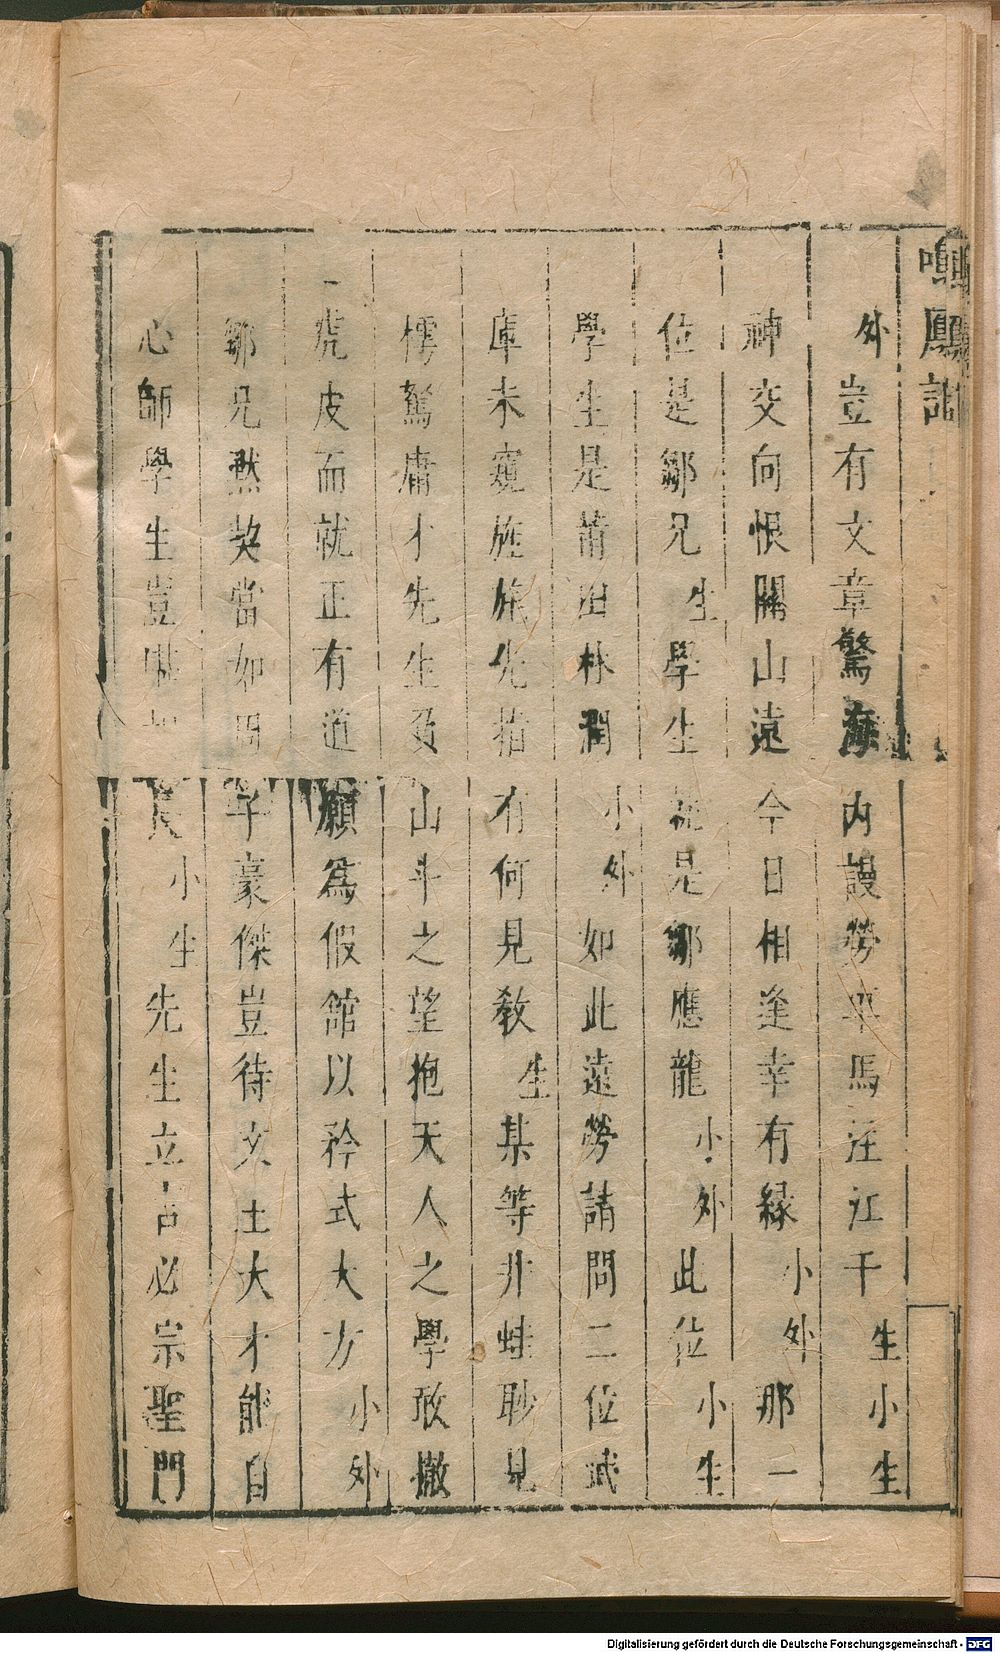 鳴鳳記
外豈有文章驚海内謾勞車馬注江干生小生
神交向恨關山遠今日相逢幸有縁小外那一
位是鄒兄生學生就是鄒應龍小外此位小生
學生是莆田林潤小外如此遠勞請問二位武
庫未窺旌旄先指有何見教生某等井蛙眇見
樗駑庸才先生負山斗之望抱天人之學敢撤
虎皮而就正有道願爲假館以矜式大方小外
鄒兄黙契當如周子豪傑豈待文王大才能自
心師學生豈 小生先生立言必宗聖門
Digitalisierung gefördert durch die Deutsche Forschungsgemeinschaft - DFG